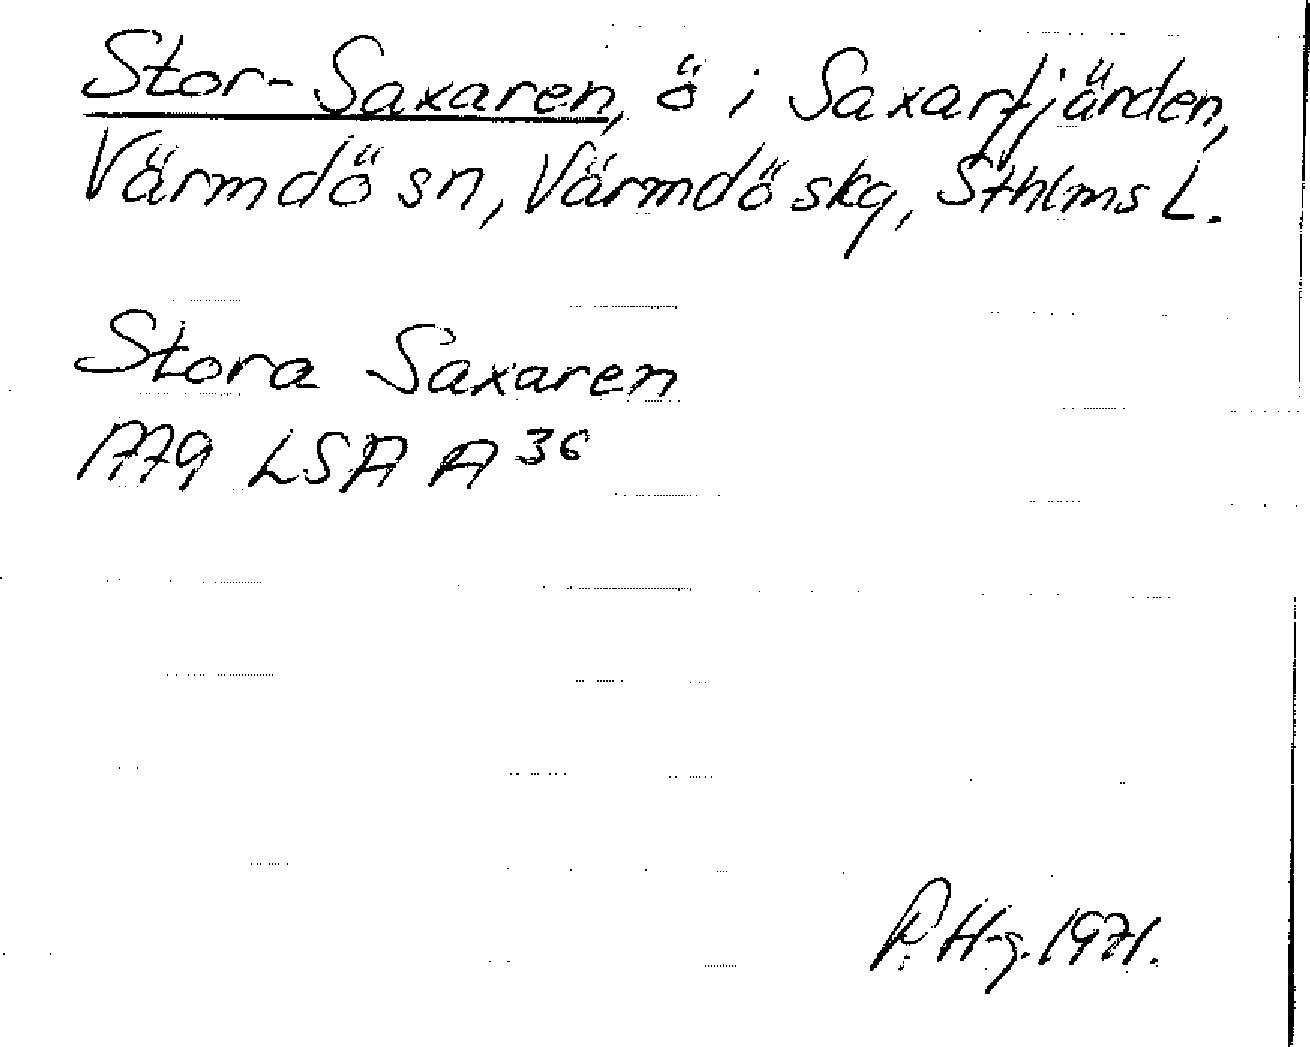 Stor-Saxaren, ö i Saxarfjärden,
Värmdö sn, Värmdö skg, Sthlms L.
Stora Saxaren
1779 LSA A 36
P. H-g. 1971.